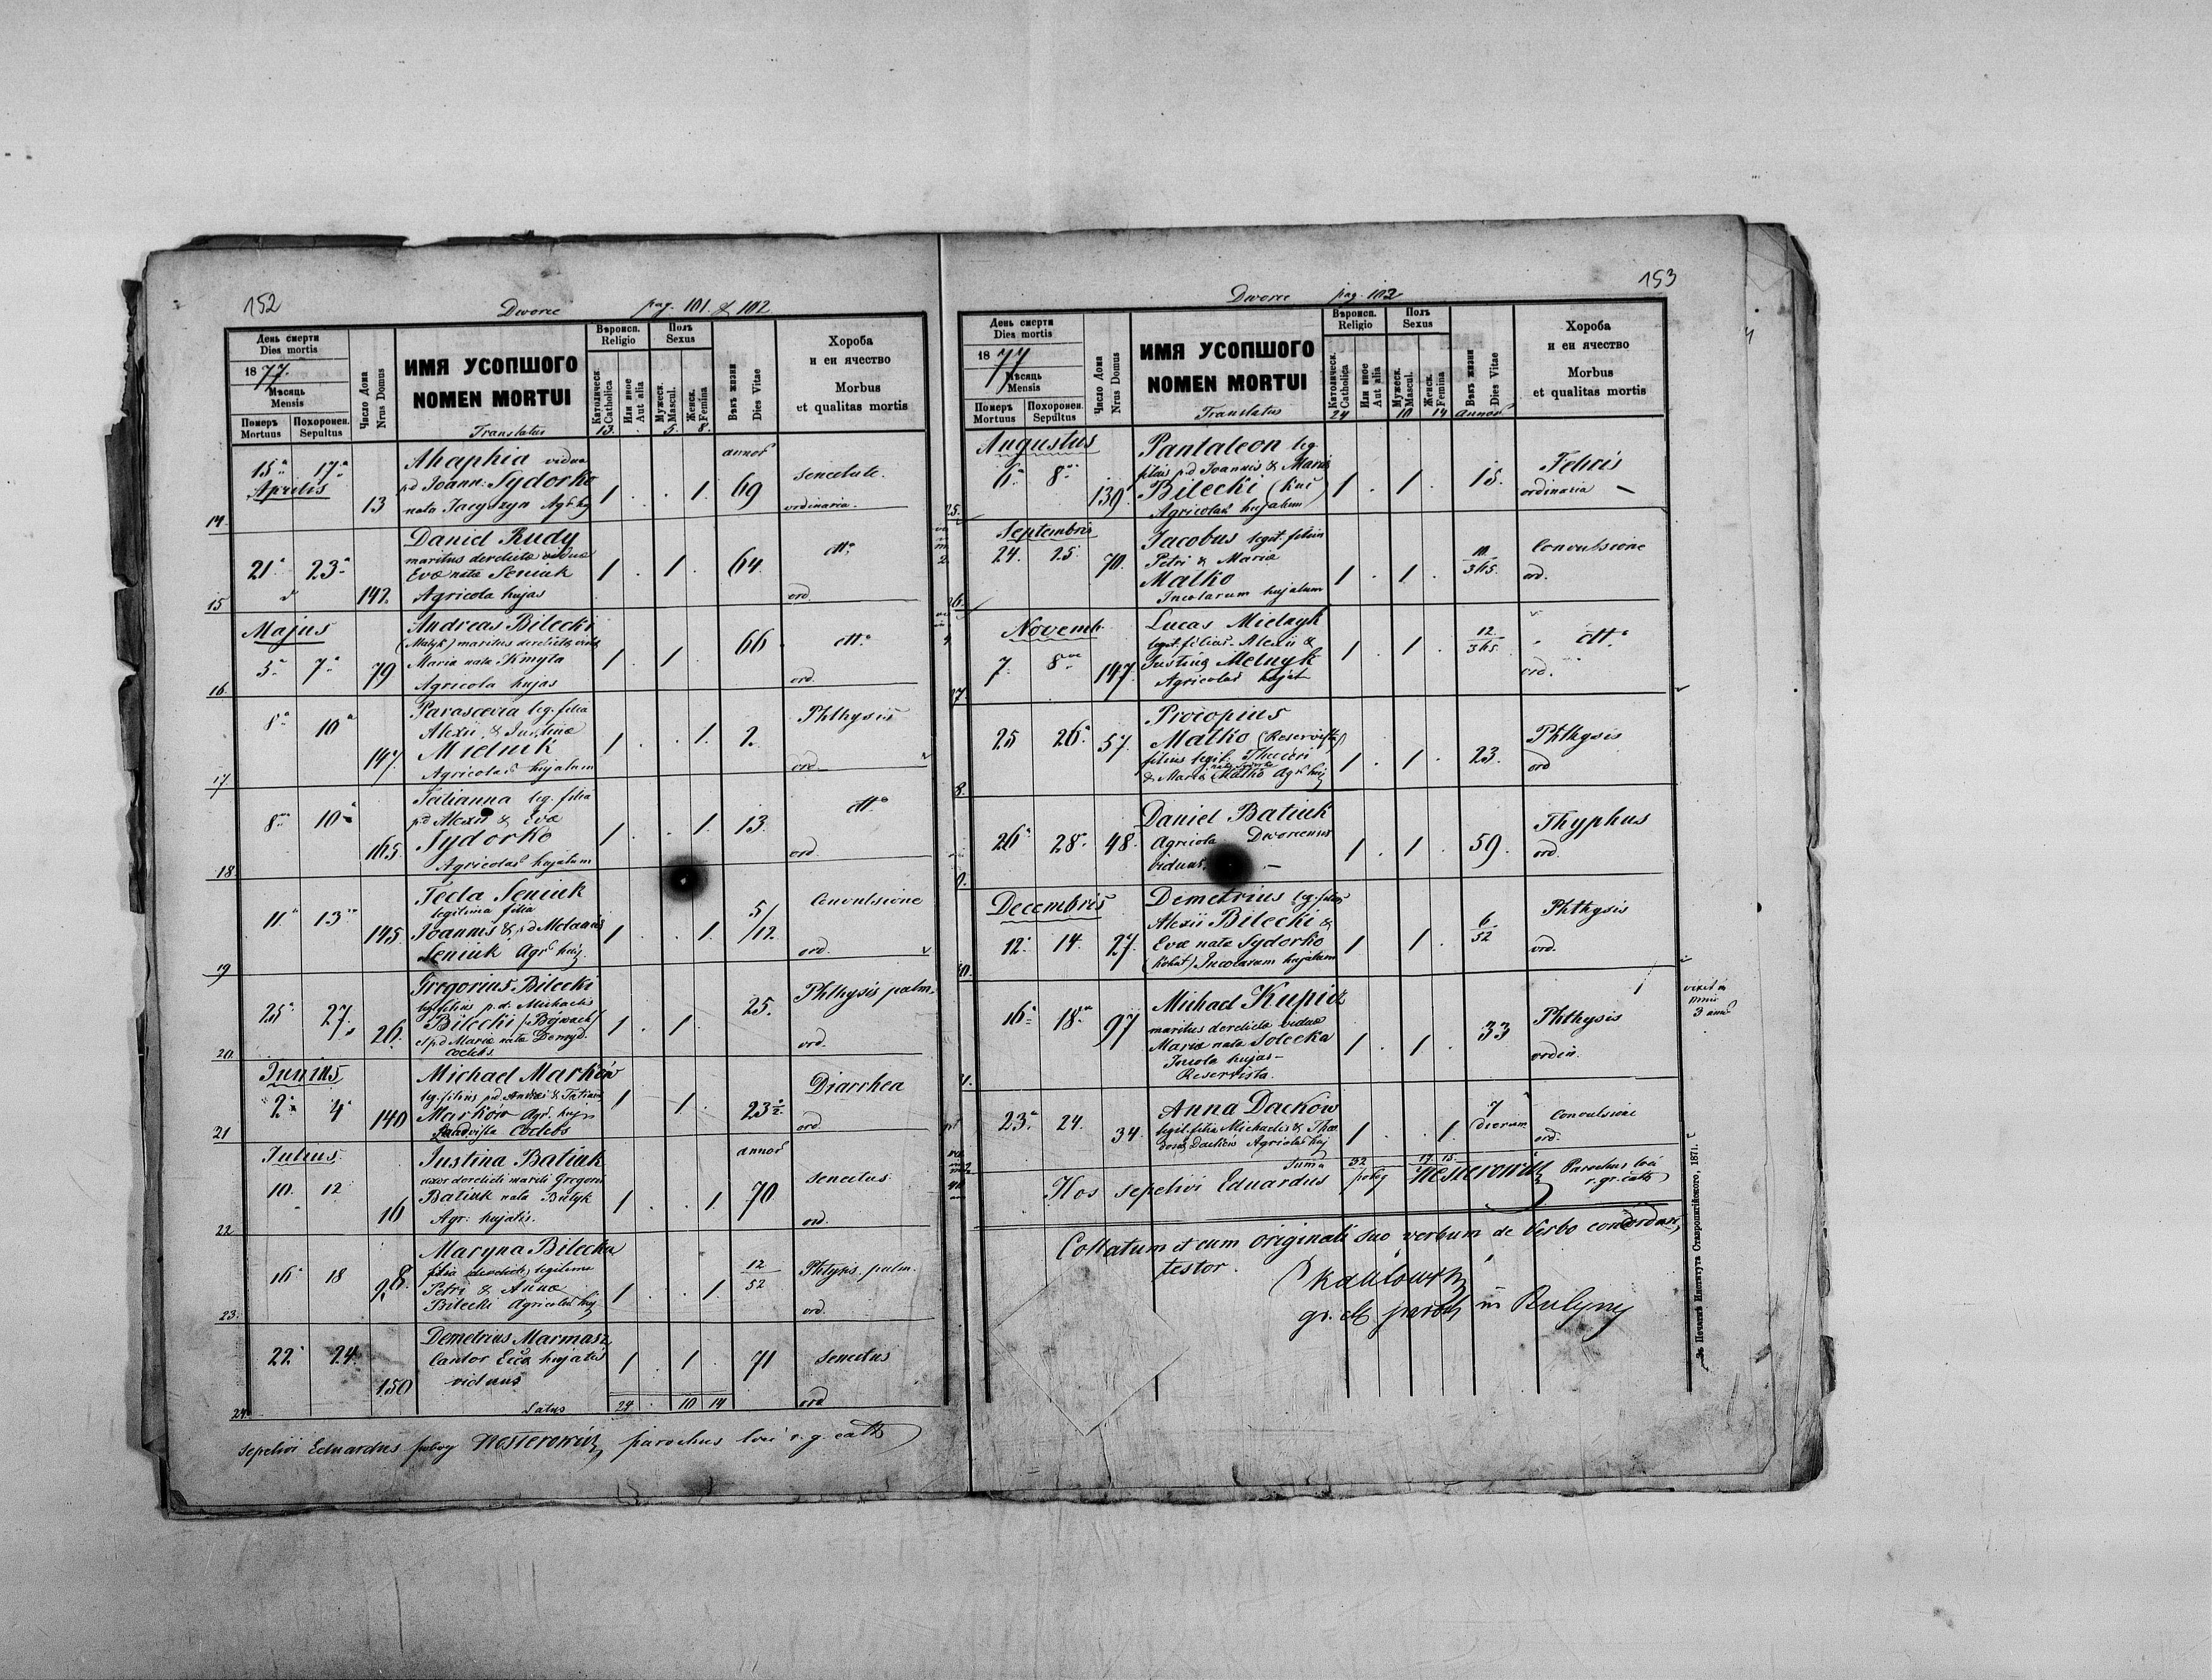 152
Dworce pag. 101. & 102
День смерти
Dies mortis
1877.
Мѣсяць
Mensis
Померъ
Mortuus
Похоронен.
Sepultus
Число Дома
Nrus Domus
ИМЯ УСОПШОГО
NOMEN MORTUI
Translatus
Вѣроисп.
Religio
Католическ.
Catholica
Или иное
Aut alia
Полъ
Sexus
Мужеск.
Mascul.
Женск.
Femina
Вѣкъ жизни
Dies Vitae
Хороба
и еи ячество
Morbus
et qualitas mortis
13. . 5. 8.
14.
15 17
Aprilis
13
Ahaphia vidua
pd Joann: Sydorko
nata Jacyszyn Agr. huj
1 . . 1.
annor
69
senectute.
ordinaria.
15
21 23
142.
Daniel Rudy
maritus derelictae viduae
Evae nata Seniuk
Agricola hujas
1 . 1 .
64.
dtto
ord.
16.
Majus
5 7 79
Andreas Bilecki
(Matyk) maritus derelictae viduae
Maria nata Kmyta
Agricola hujas
1 . 1 .
66
dtto
ord.
17.
8 10
147.
Parascevia leg. filia
Alexii & Justinae
Mielnik
Agricolar hujatum
1 . . 1.
2.
Phthysis
ord.
18.
8 10
165
Tatianna leg. filia
pd Alexii & Evae
Sydorko
Agricolar hujatum
1 . . 1.
13.
dtto
ord.
19
11 13
145
Tecla Seniuk
legitima filia
Joannis & pd Melaniae
Seniuk Agr huj.
1 . . 1.
5/12
Convulsione
ord.
20.
25 27.
26.
Gregorius Bilecki
leg. filius p.d. Michaelis
Bilecki
& pd Maria nata Demyd.
coelebs
1 . 1 .
25.
Phthysis pulm.
ord.
21
Junius
2 4 140
Michael Markow
leg. filius pd Andreae & Tatianae
Markow Agr. huj
coelebs
1 . 1 .
23 1/2
Diarrhea
ord
22
Julius
10. 12
16
Justina Batiuk
uxor derelicti mariti Gregorii
Batiuk nata Bulyk
Agr: hujatis.
1 . . 1.
annor
70
senectus
ord.
23.
16 18
98.
Maryna Bilecka
filia legitima
Petri & Anna
Bilecki Agricolar huj
1 . . 1.
12/52
Phtysis. pulm.
ord.
24.
22 24.
150
Demetrius Marmasz
Cantor Eccl. hujatis
viduus
1 . 1 .
71
senectus
ord
Latus 24 . 10 14
sepelivi Eduardus pobog Nesterowicz parochus loci r. g. cath
153
Dworce pag. 102
День смерти
Dies mortis
1877
Мѣсяць
Mensis
Померъ
Mortuus
Похоронен.
Sepultus
Число Дома
Nrus Domus
ИМЯ УСОПШОГО
NOMEN MORTUI
Translatus
Вѣроисп.
Religio
Католическ.
Catholica
Или иное
Aut alia
Полъ
Sexus
Мужеск.
Mascul.
Женск.
Femina
Вѣкъ жизни
Dies Vitae
Хороба
и еи ячество
Morbus
et qualitas mortis
24 10 14 annor
25.
Augustus
6 8
139.
Pantaleon leg
filius pd Joannis & Maria
Bilecki
Agricolar hujatum
1 . 1 .
15.
Febris
ordinaria
26.
Septembris
24. 25 70.
Jacobus legit. filius
Petri & Maria
Matko
Incolarum hujatum
1 . 1 .
10/365.
Convulsione
ord.
27
Novemb
7. 8 147.
Lucas Mielnyk
legit. filius. Alexii &
Justina Melnyk
Agricolar hujat
1 . 1 .
12/365
dtto
ord.
8.
25 26. 57.
Procopius
Matko (Reservista)
filius legit.
& Maria Matko Agr huj
1 . 1 .
23.
Phthysis
ord
26 28. 48.
Daniel Batiuk
Agricola Dworcensis
viduus.
1 . 1 .
59.
Thyphus
ord.
Decembris
12. 14. 27.
Demetrius leg. filius
Alexii Bilecki &
Evae nata Sydorko
Incolarum hujatum
1 1 .
6/52
Phthysis
ord.
16 18 97
Michael Kupicz
maritus derelictae viduae
Maria nata Solecka
Incola hujas
Reservista.
1 . 1 .
33
Phthysis
ordin.
23. 24. 34.
Anna Dackow
legit. filia Michaelis & Theo
dosia Dackow Agricolar huj
1 . . 1.
7 dierum
Convulsione
ord.
Suma 32 17. 15.
Hos sepelivi Eduardus pobog Nesterowicz Parochus loci
r. gr. cath
Collatum et cum originali suo verbum de verbo concordare,
testor.
gr. c. paroch in Rulyny
Зъ Печатнѣ Института Ставропигійского, 1871.